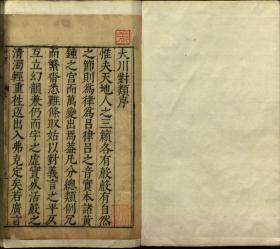 大川對類序
惟夫天地人之三籟各有般般有自然
之節則為律為呂律呂之音實本諸黃
鍾之宮而萬變出焉蓋凡分總類例冗
而繁沓悉難條取始以對義言之平仄
互立幻韻兼仍而字之虛實死活嚴之
清濁輕重牲返出入弗克定矣若廣言